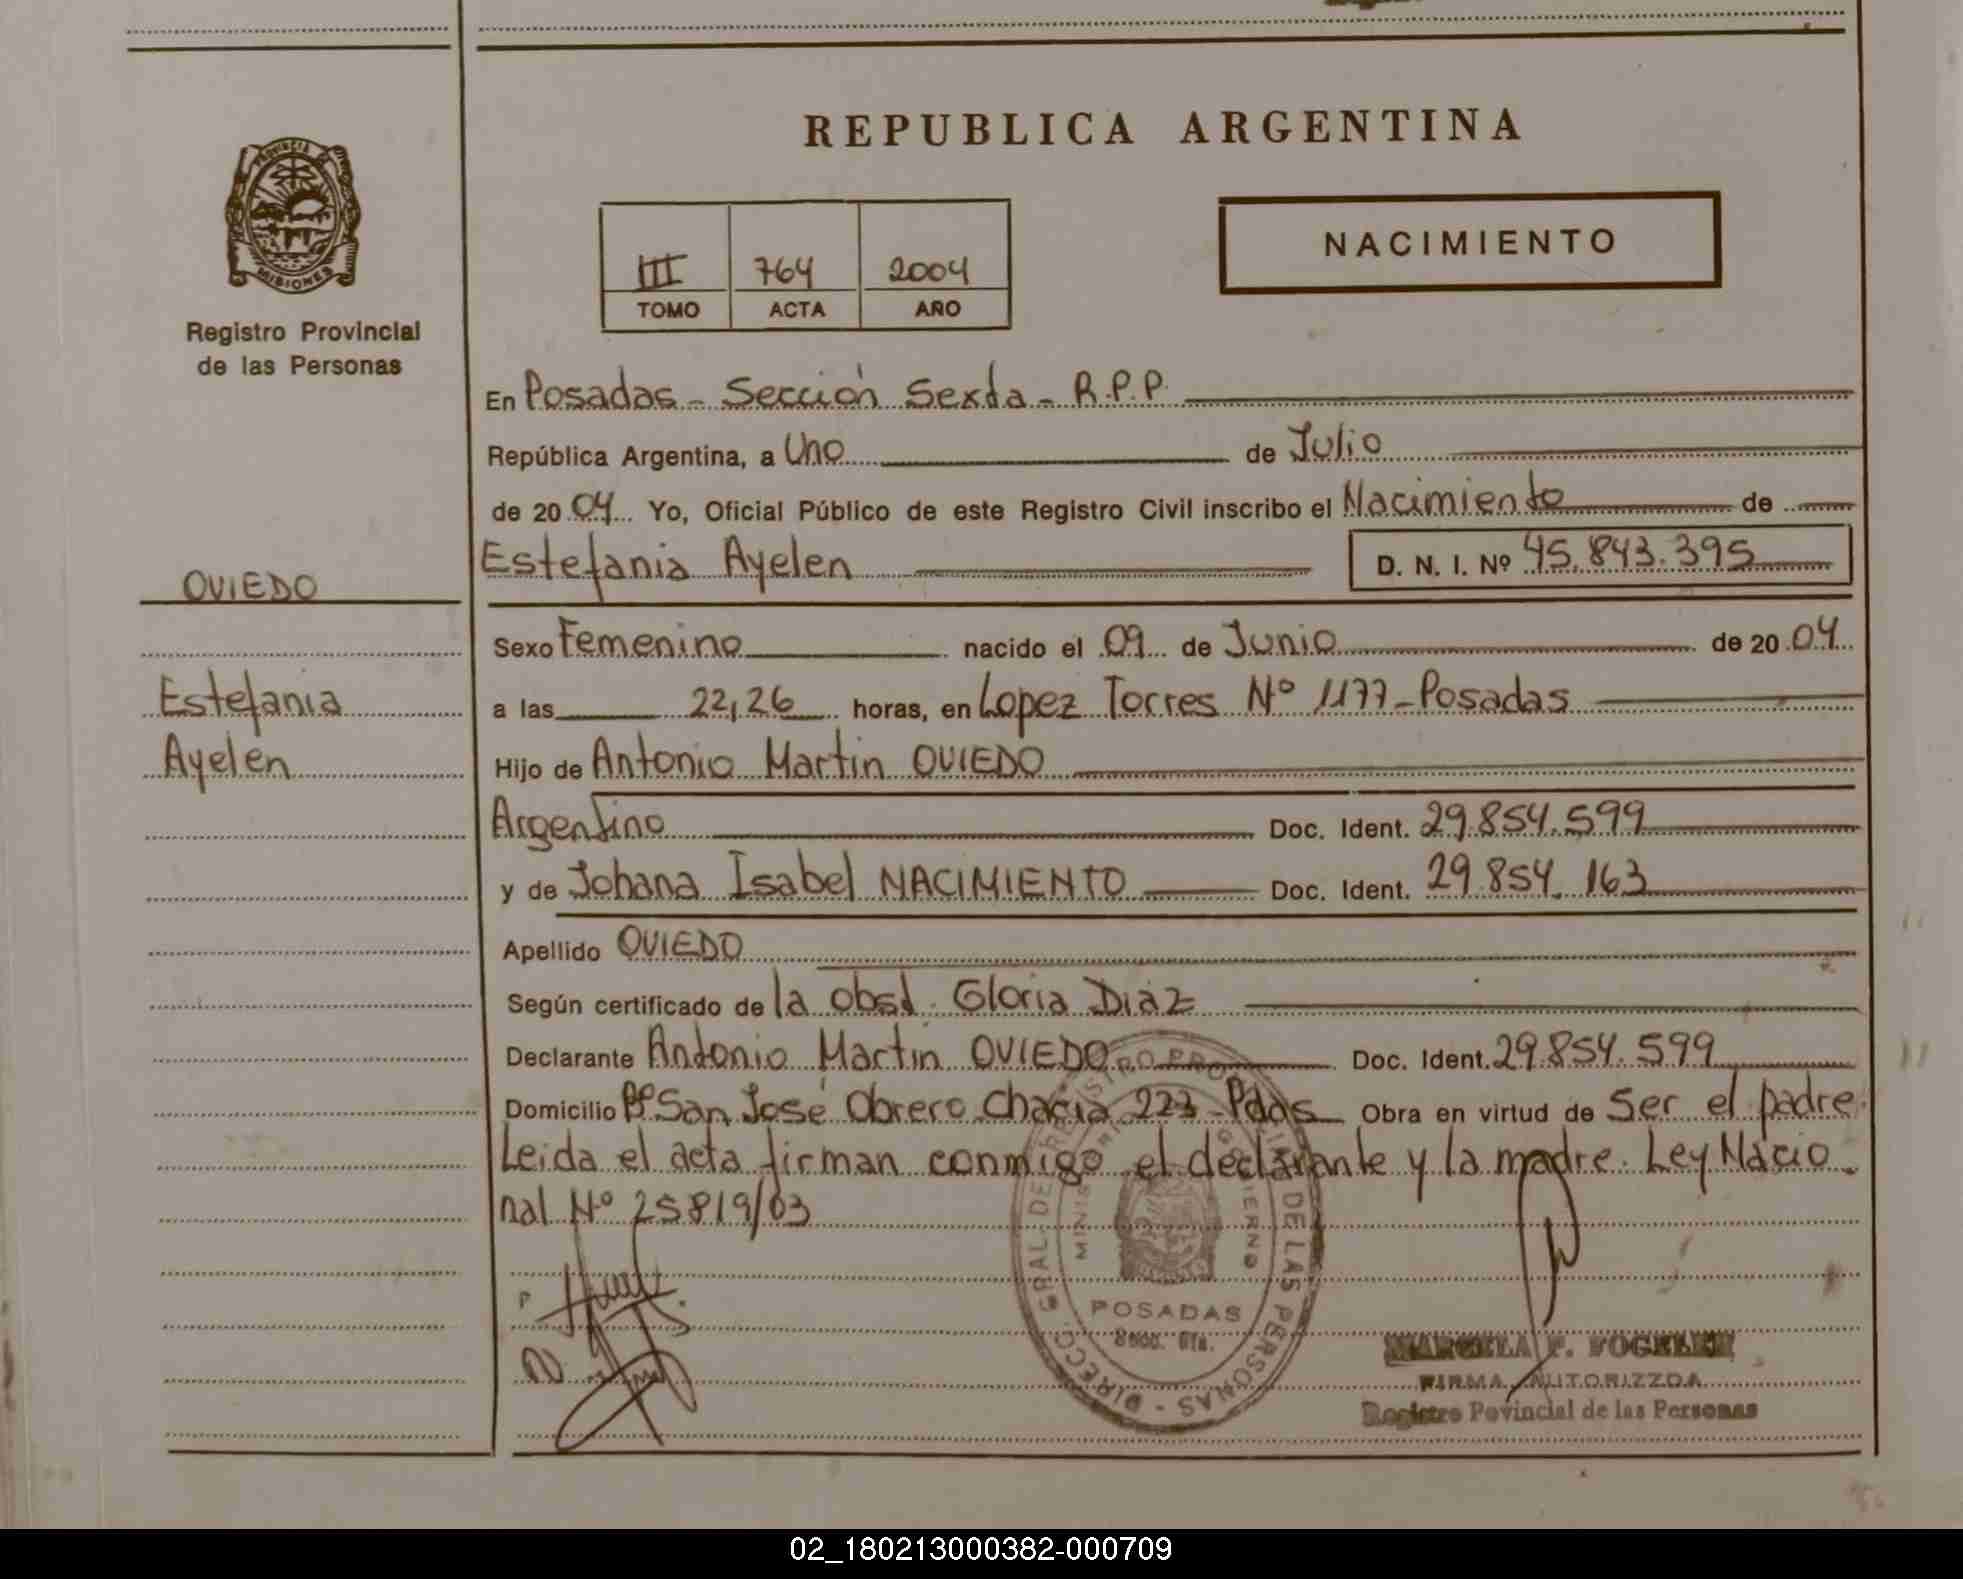 REPUBLICA ARGENTINA
PROVINCIA DE
MISIONES
Registro Provincial
de las Personas
III 764 2004
TOMO ACTA AÑO
NACIMIENTO
En Posadas - Sección Sexta - R.P.P.
República Argentina, a Uno de Julio
de 2004. Yo, Oficial Público de este Registro Civil inscribo el Nacimiento de
Estefania Ayelen D. N. I. Nº 45.843.395
OVIEDO
Estefania
Ayelen
Sexo Femenino nacido el 09 de Junio de 2004
a las 22,26 horas, en Lopez Torres Nº 1177-Posadas
Hijo de Antonio Martin OVIEDO
Argentino Doc. Ident. 29.854.599
y de Johana Isabel NACIMIENTO Doc. Ident. 29.854.163
Apellido OVIEDO
Según certificado de la obst. Gloria Diaz
Declarante Antonio Martin OVIEDO Doc. Ident. 29.854.599
Domicilio Bº San José Obrero Chacra 223-Pdas Obra en virtud de Ser el padre.
Leida el acta firman conmigo el declarante y la madre. Ley Nacio-
nal Nº 25819/03
DIRECC. GRAL. DEL REGISTRO PROVINCIAL DE LAS PERSONAS
MINISTERIO GOBIERNO
POSADAS
Secc. 6ta.
P
MARCELA F.
FIRMA AUTORIZZDA
Registro Povincial de las Personas
02_180213000382-000709